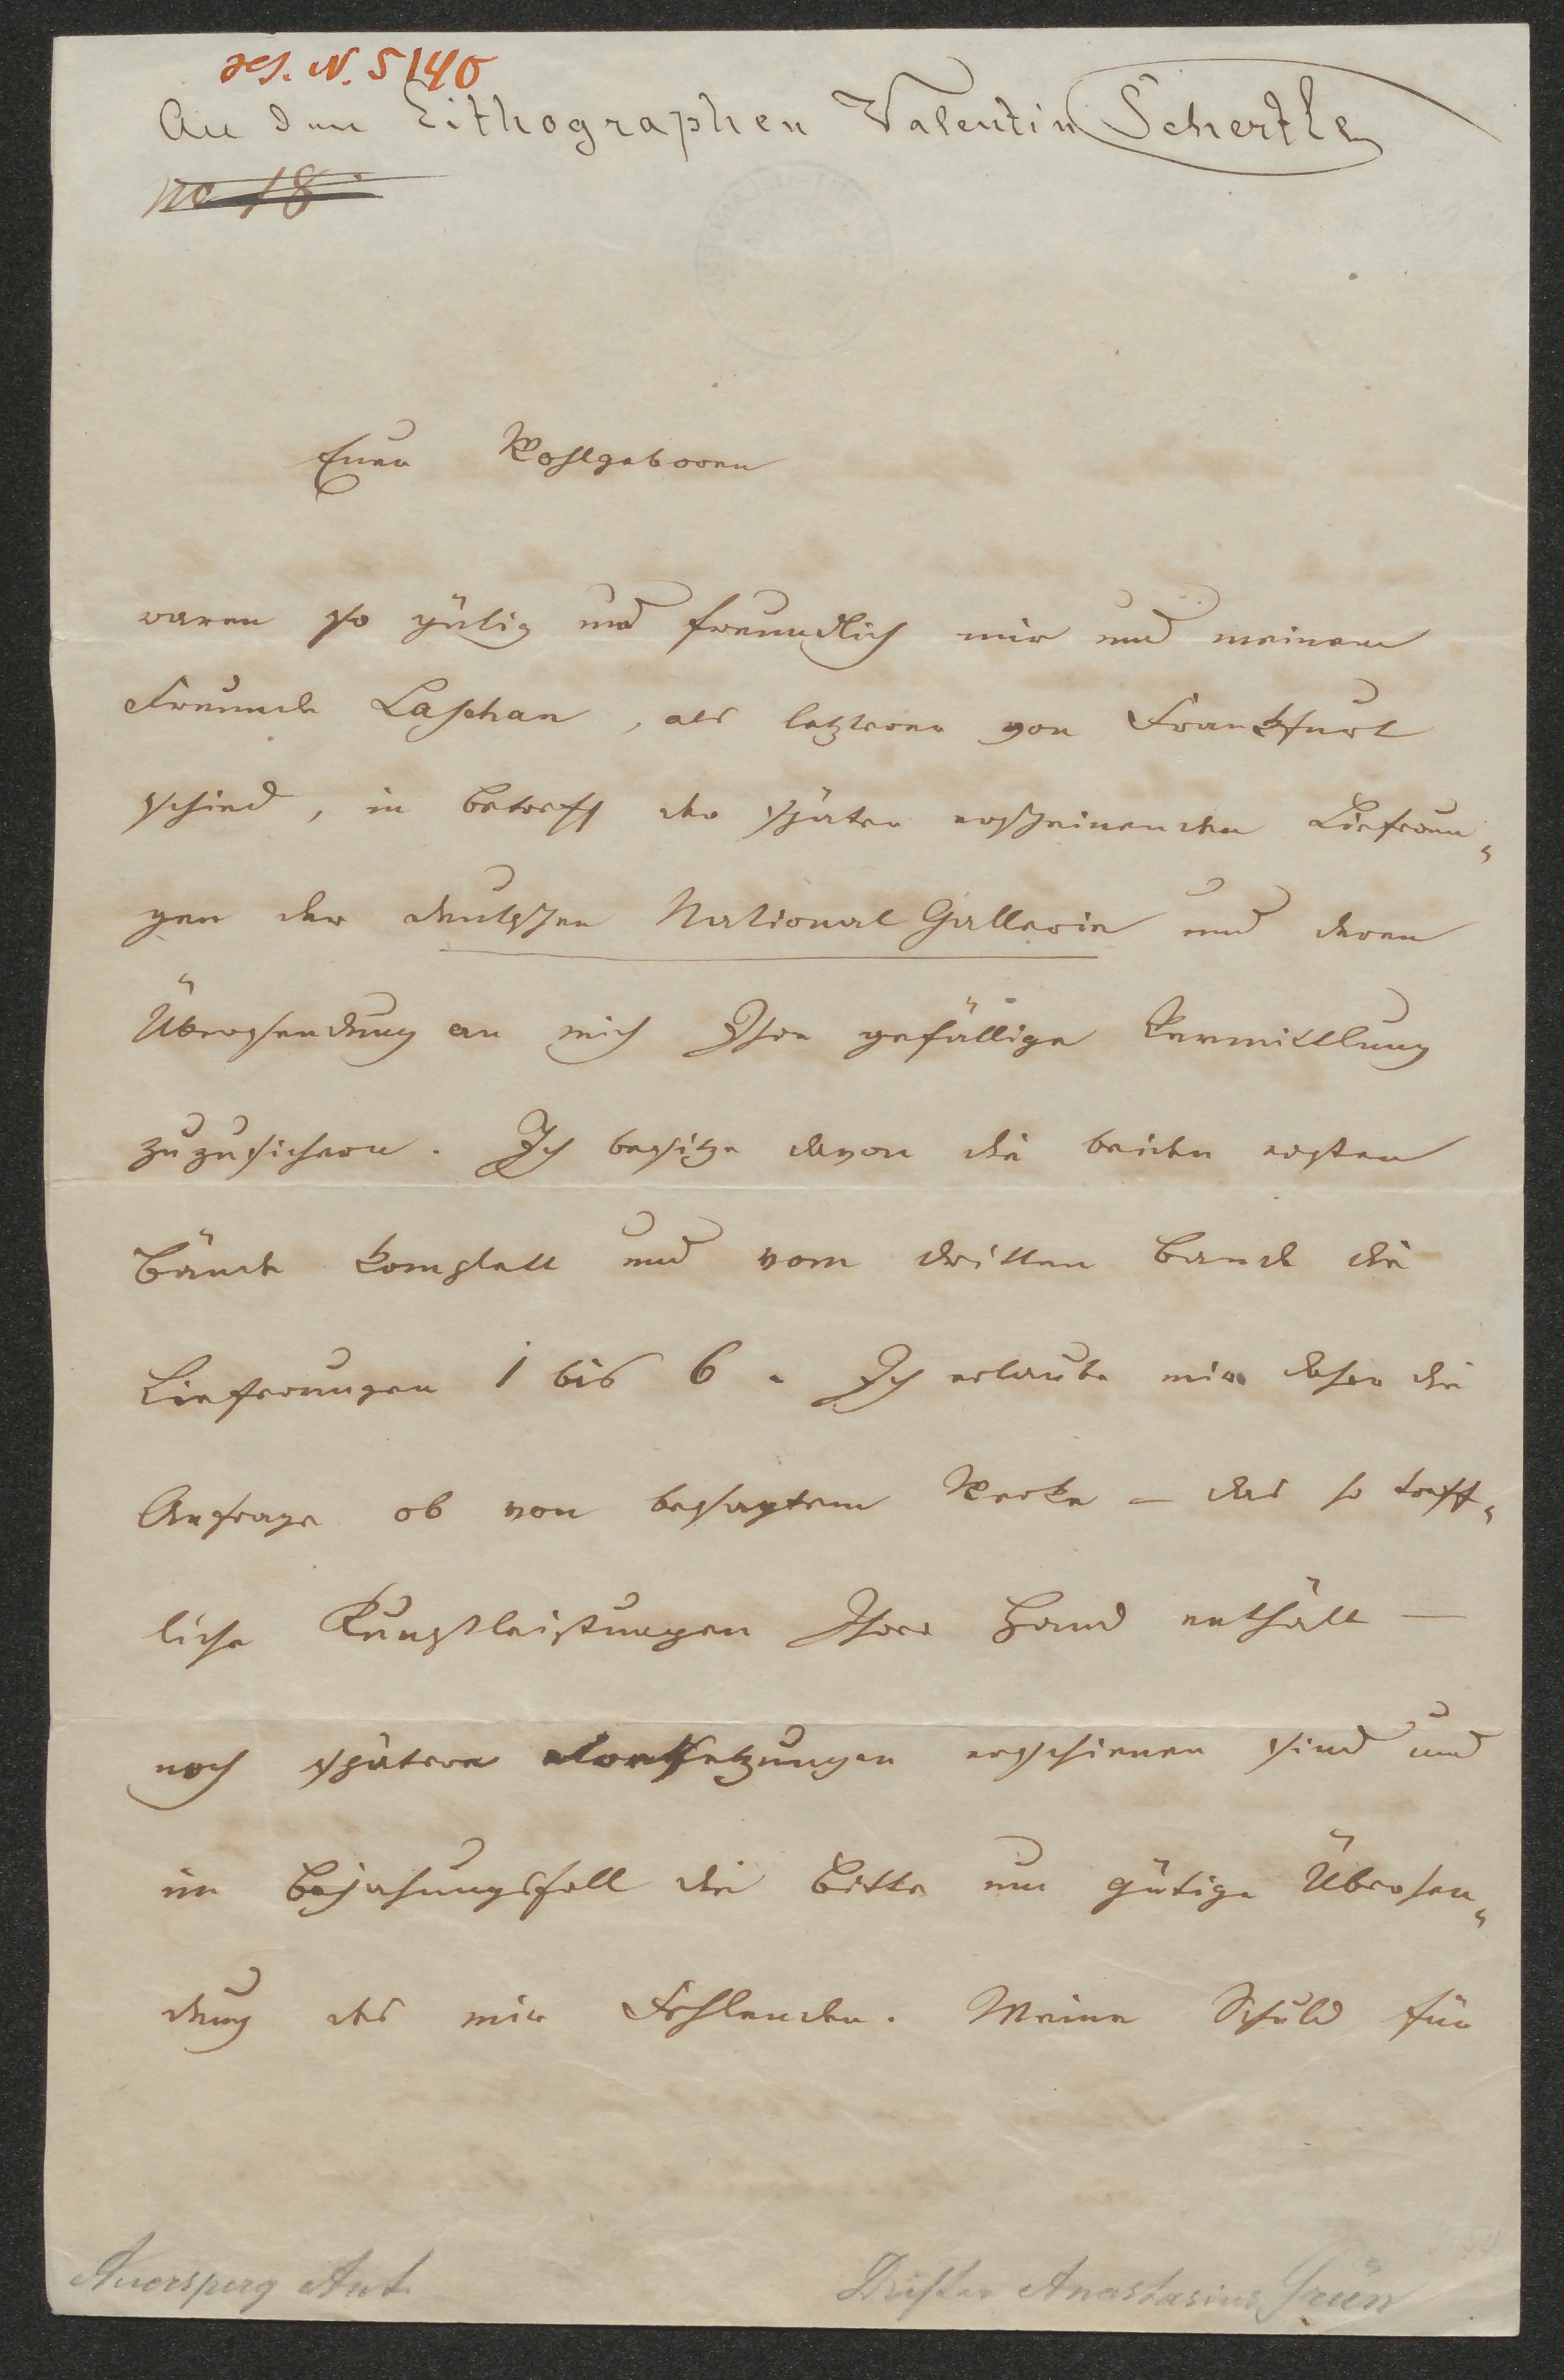 acs. N. 5140
An den Lithographen Valentin Schertle
No 18.
Euer Wohlgeboren
waren so gütig und freundlich mir und meinem
Freunde Laschan, als letzterer von Frankfurt
schied, in Betreff der später erscheinenden Lieferun-
gen der deutschen National Gallerie und deren
Übersendung an mich Ihre gefällige Vermittlung
zuzusichern. Ich besitze davon die beiden ersten
Bände komplett und vom dritten Bande die
Lieferungen 1 bis 6. Ich erlaube mir daher die
Anfrage ob von besagtem Werke – das so treff-
liche Kunstleistungen Ihrer Hand enthält –
noch spätere Fortsetzungen erschienen sind und
im Bejahungsfall die Bitte um gütige Übersen-
dung des mir Fehlenden. Meine Schuld für
Auersperg Ant.
Dichter Anastasius Grün